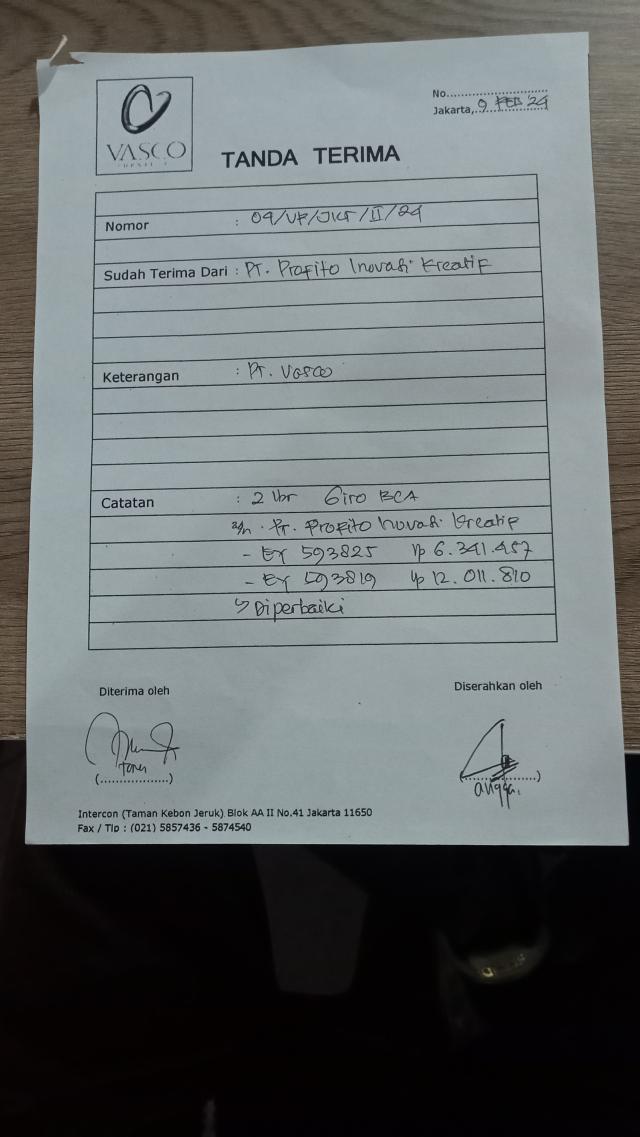 No..............................
Jakarta, 9 FEB 24
VASCO
TANDA TERIMA
Nomor : 09/VF/JKT/II/24
Sudah Terima Dari : PT. Profito Inovasi Kreatif
Keterangan : PT. Vasco
Catatan : 2 lbr Giro BCA
a/n. PT. Profito Inovasi Kreatif
- EY 593825 Rp 6.341.457
- EY 593819 Rp 12.011.810
↳ Diperbaiki
Diterima oleh
Diserahkan oleh
(..................)
(..................)
angga.
Intercon (Taman Kebon Jeruk) Blok AA II No.41 Jakarta 11650
Fax / Tlp : (021) 5857436 - 5874540